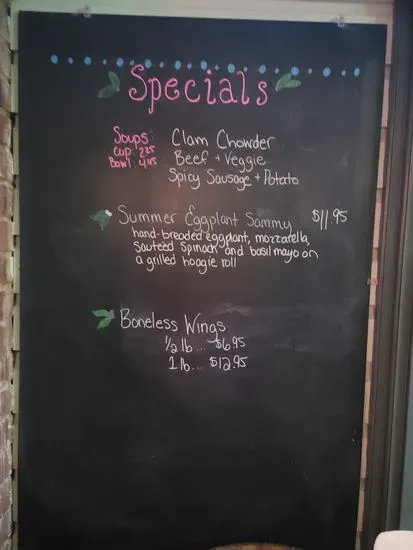 Specials
Soups: Clam Chowder
Cup: 2.25 Beef + Veggie
Bowl: 4.45 Spicy Sausage + Potato
Summer Eggplant Sammy $11.95
hand-breaded eggplant, mozzarella,
sauteed spinach and basil mayo on
a grilled hoagie roll
Boneless Wings
1/2 lb... $6.95
1 lb... $12.95